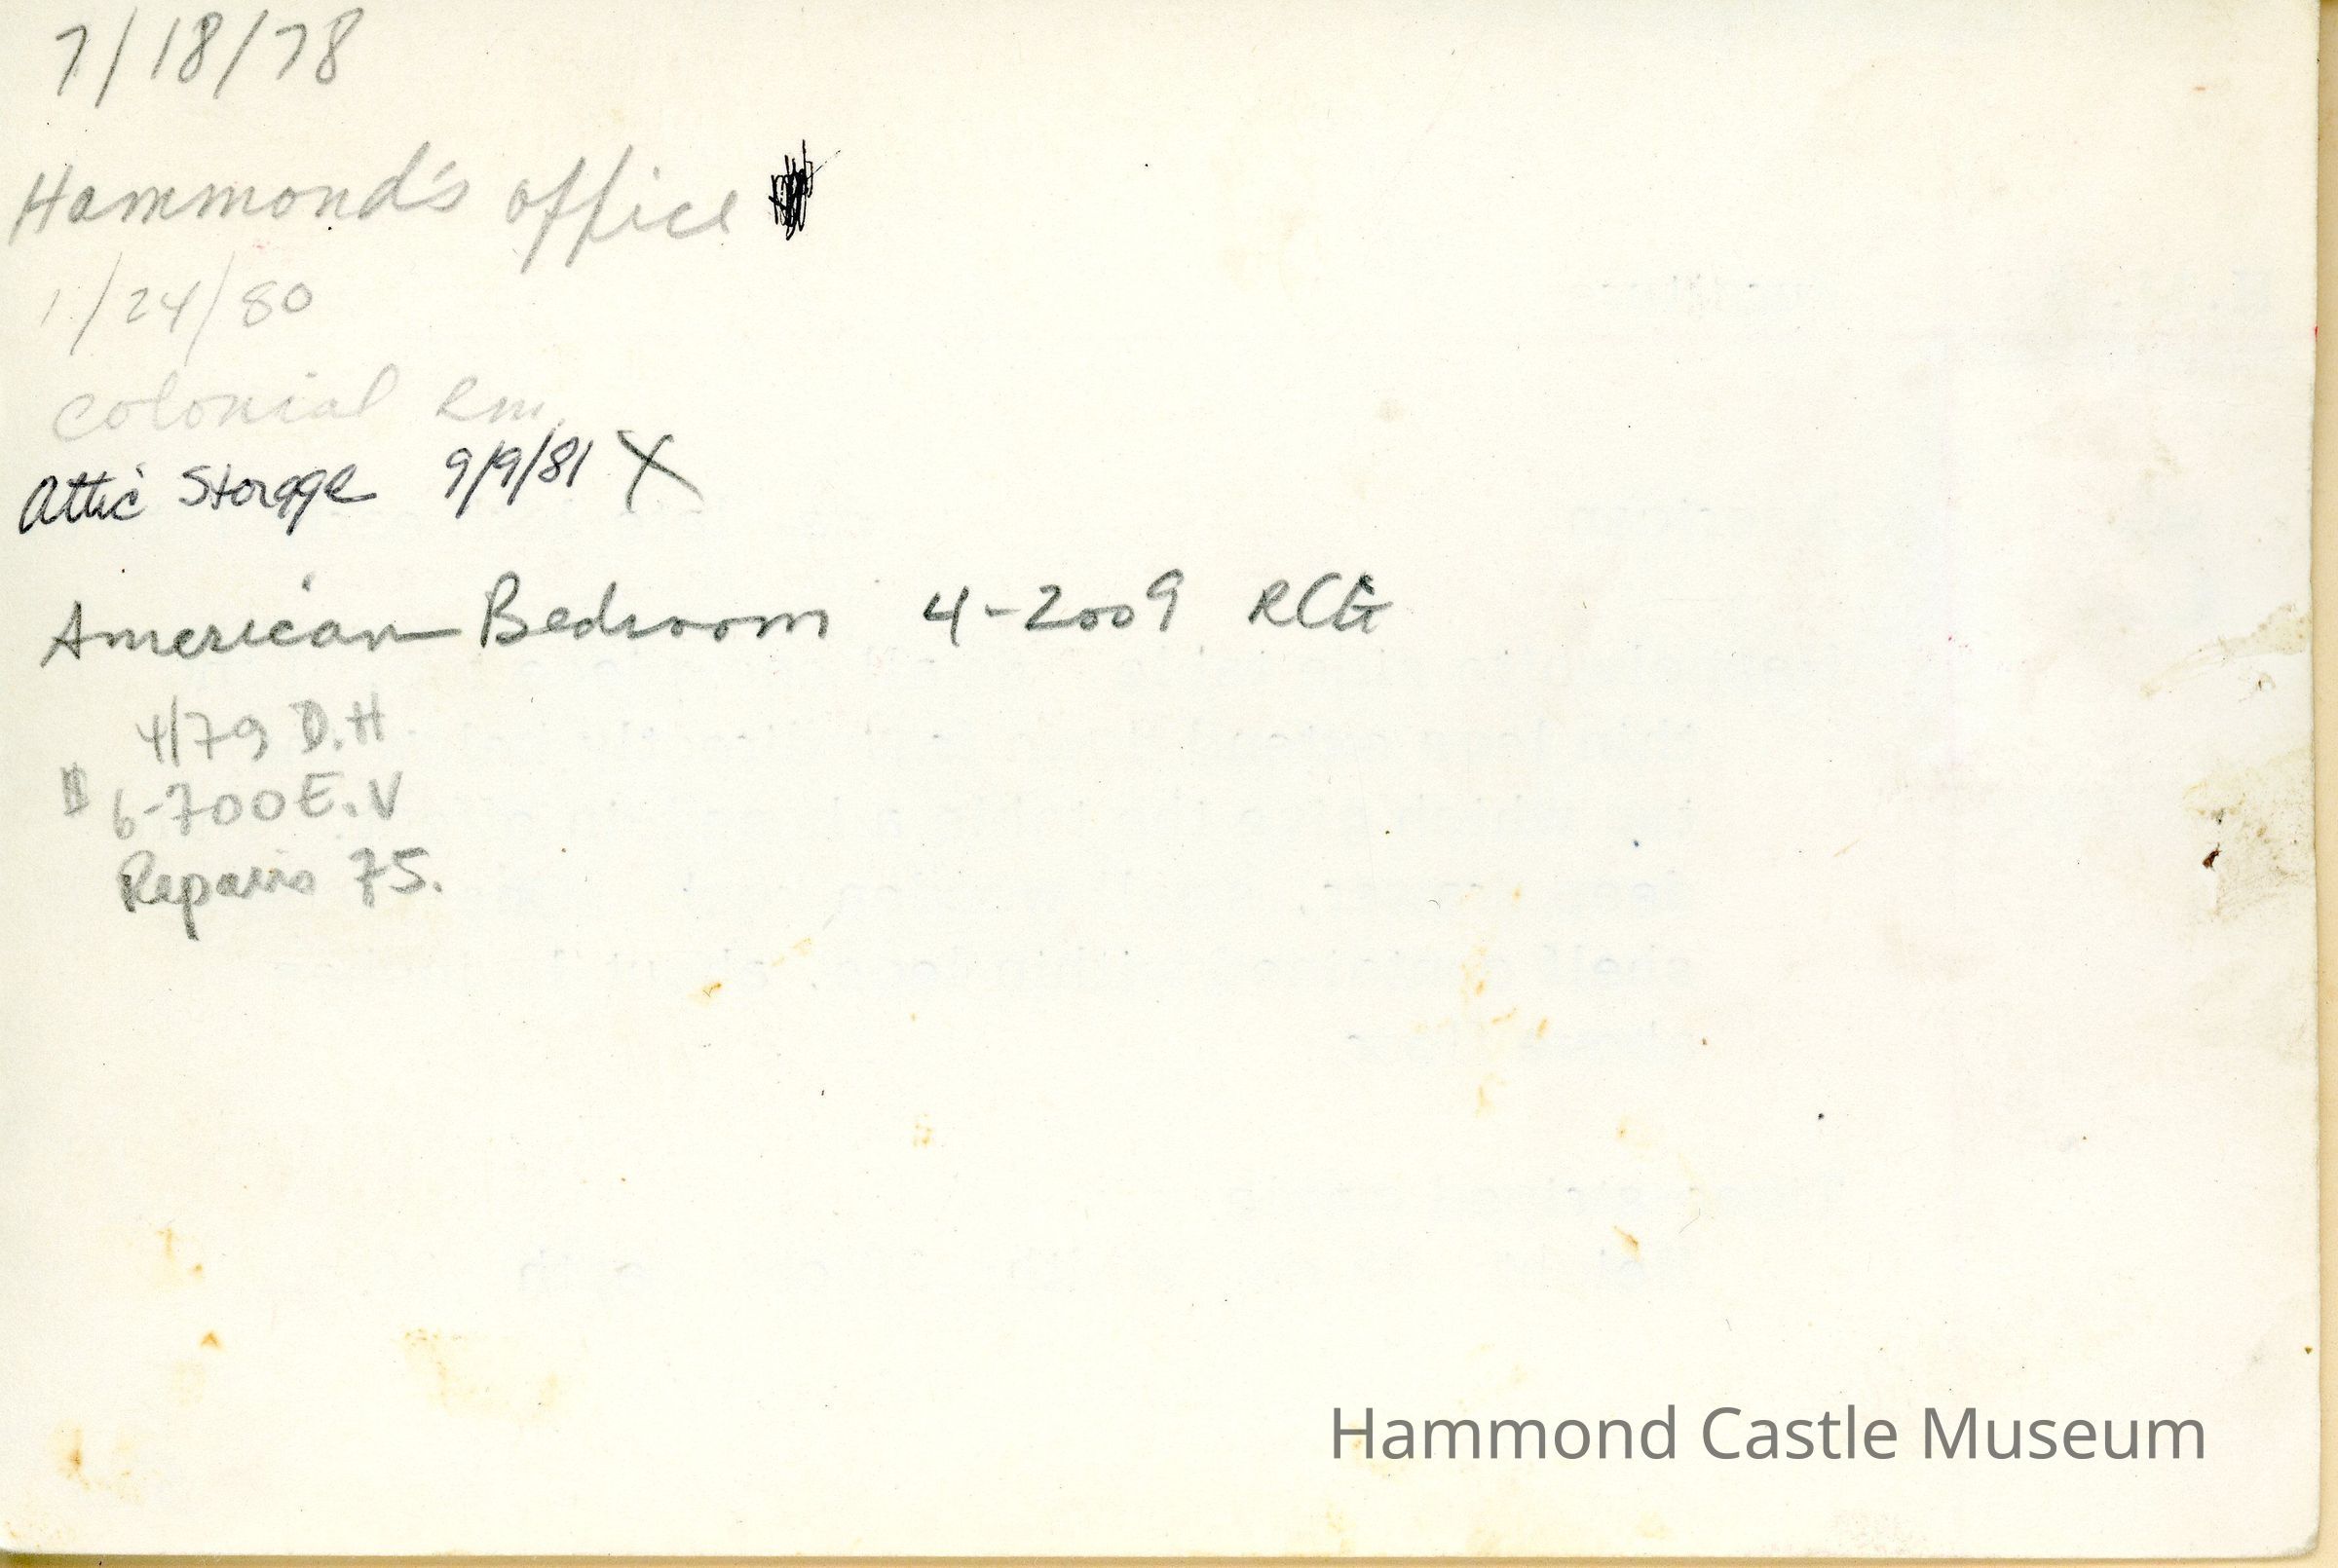 7/18/78
Hammond's office
1/24/80
Colonial Rm.
Attic Storage 9/9/81 X
American Bedroom 4-2009 RCG
4/79 D.H
$ 6-700 E.V
Repairs 75.
Hammond Castle Museum